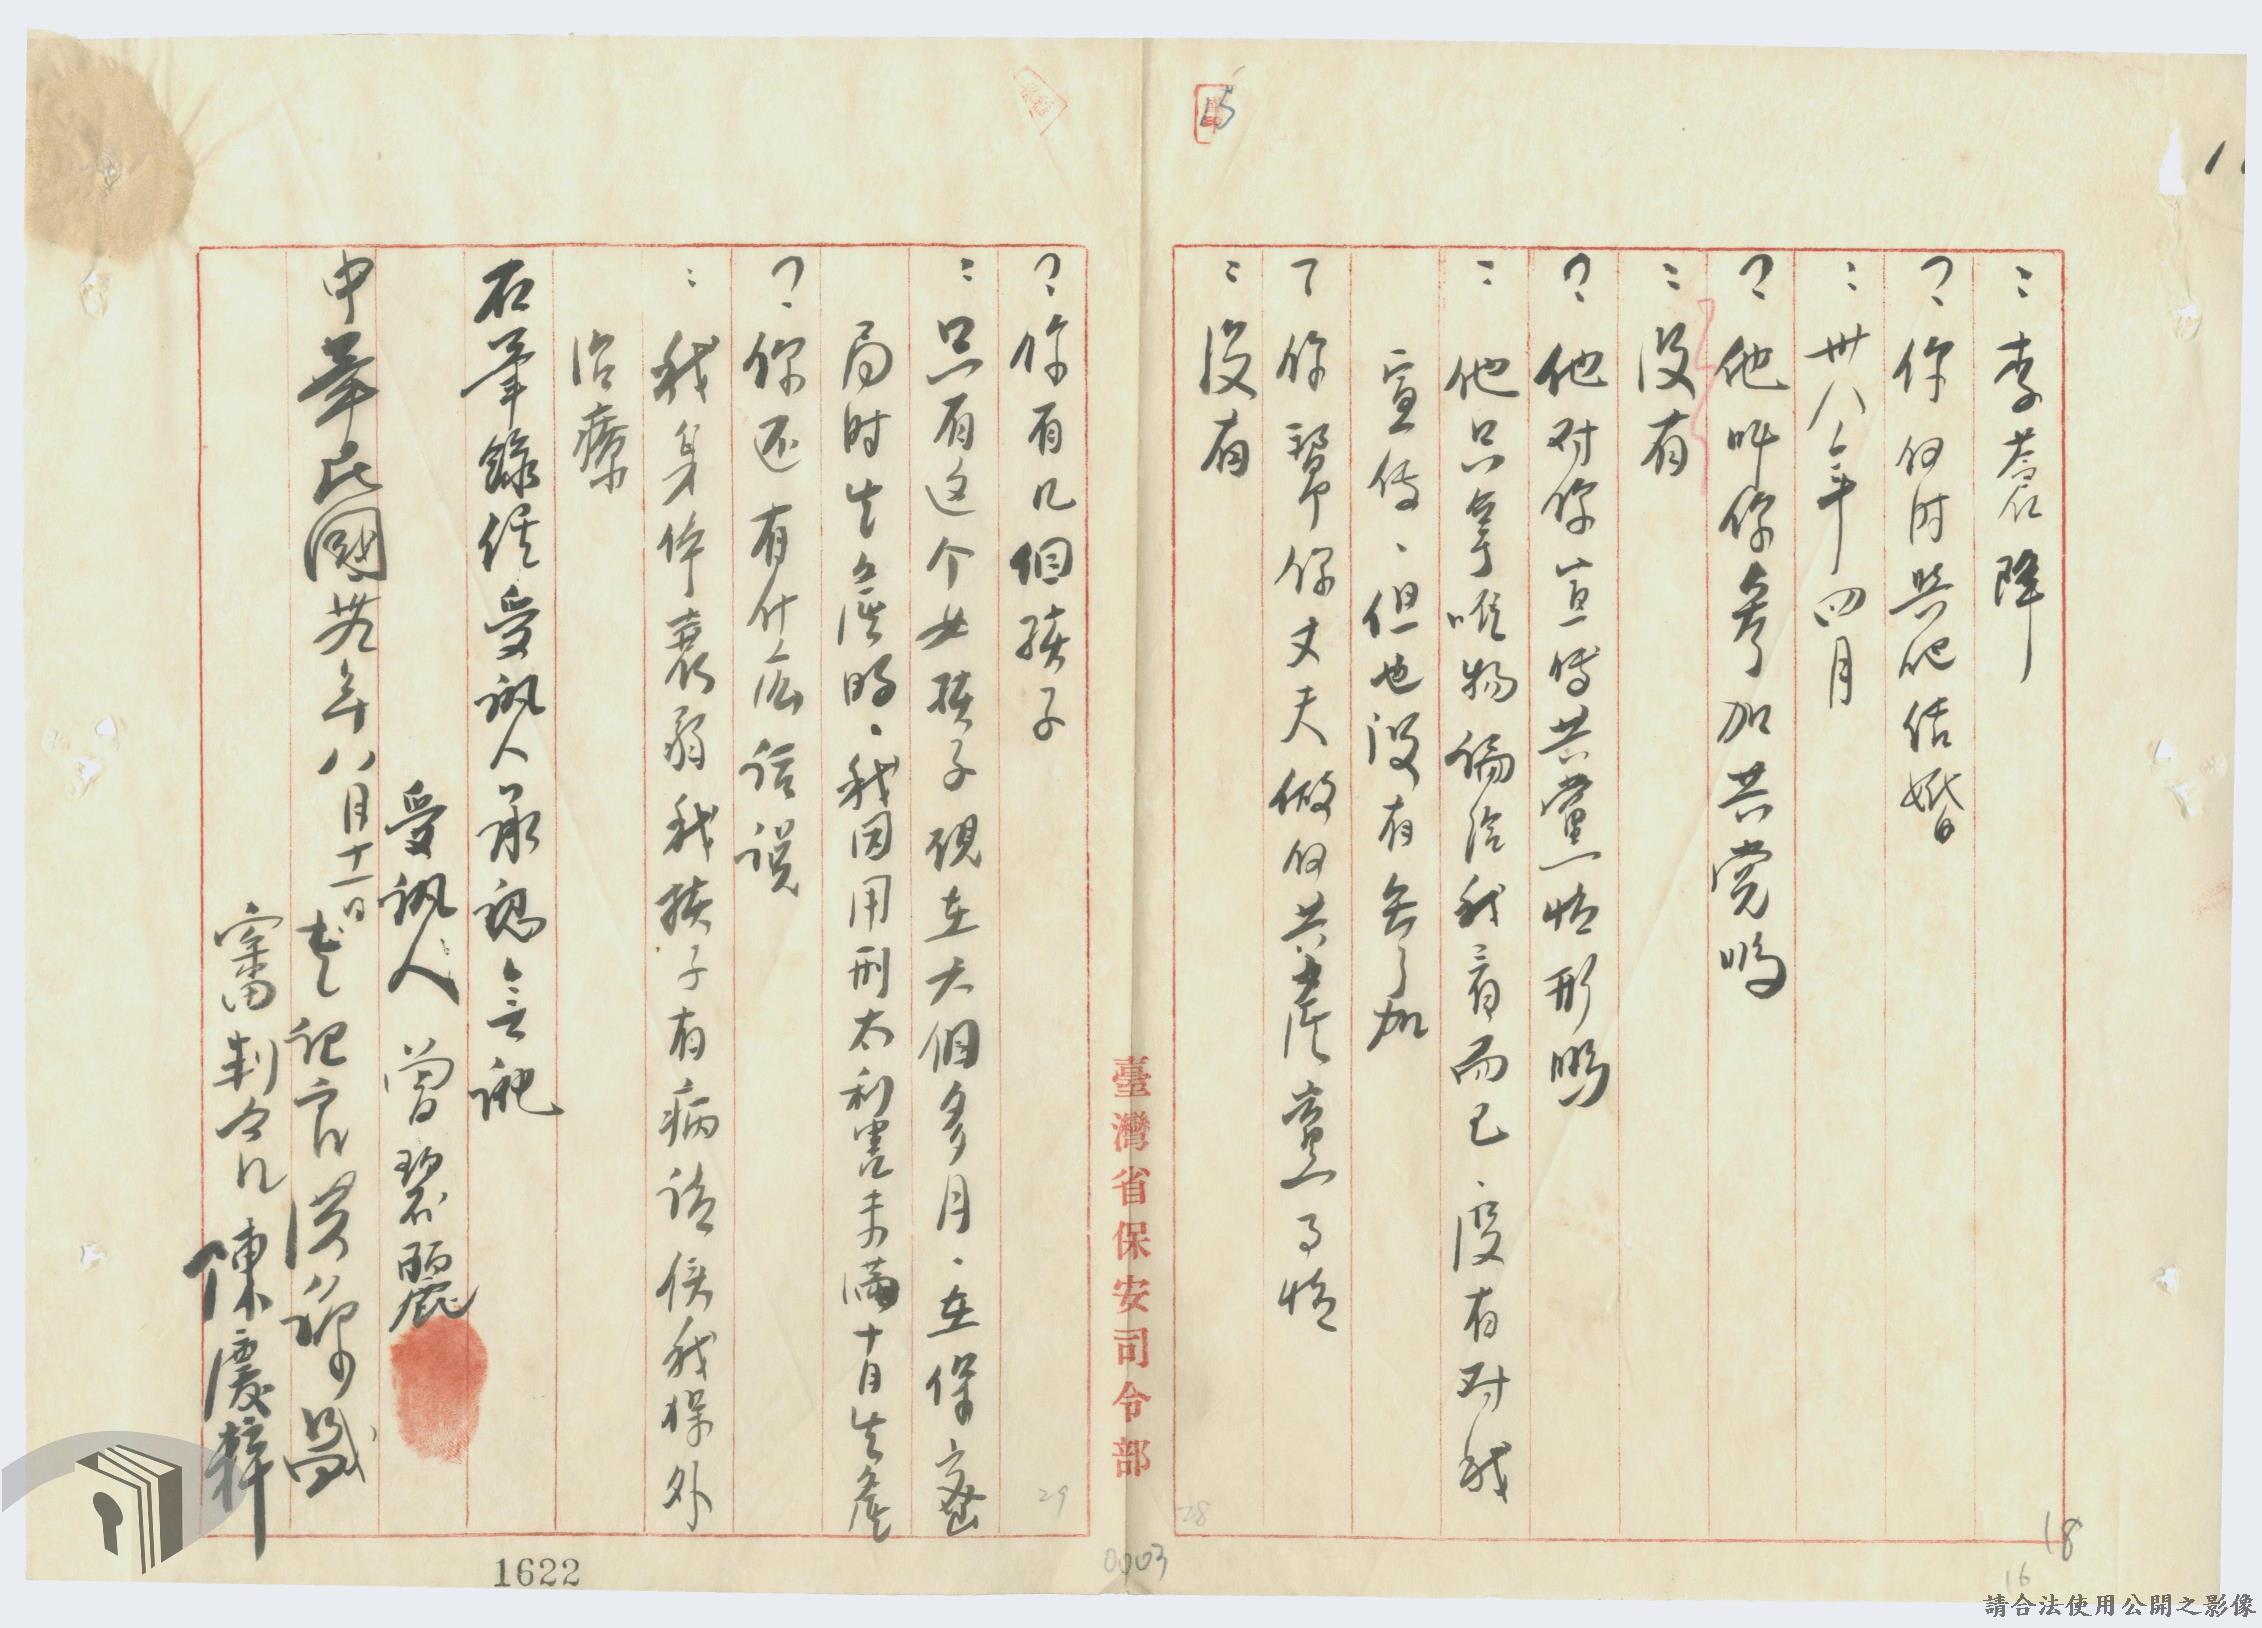 ：李蒼降
？你何时與他结婚
：卅八年四月
？他叫你参加共党吗
：没有
？他对你宣傳共黨情形嗎
：他只拿唯物论给我看而已、没有对我
宣传、但也没有参加
？你幫你丈夫做何共產黨了情
：没有
？你有几個孩子
：只有这个女孩子现在六個多月、在保密
局时生產的、我因用刑太利害未滿十月生產
？你还有什么話説
：我身体衰弱我孩子有病請侯我保外
治療
右筆錄経受訊人承認無訛
受訊人 曾碧麗
中華民國卅九年八月十一日
書記官 洪
審判官 陳慶粹
臺灣省保安司令部
28
29
0003
18
16
1622
請合法使用公開之影像